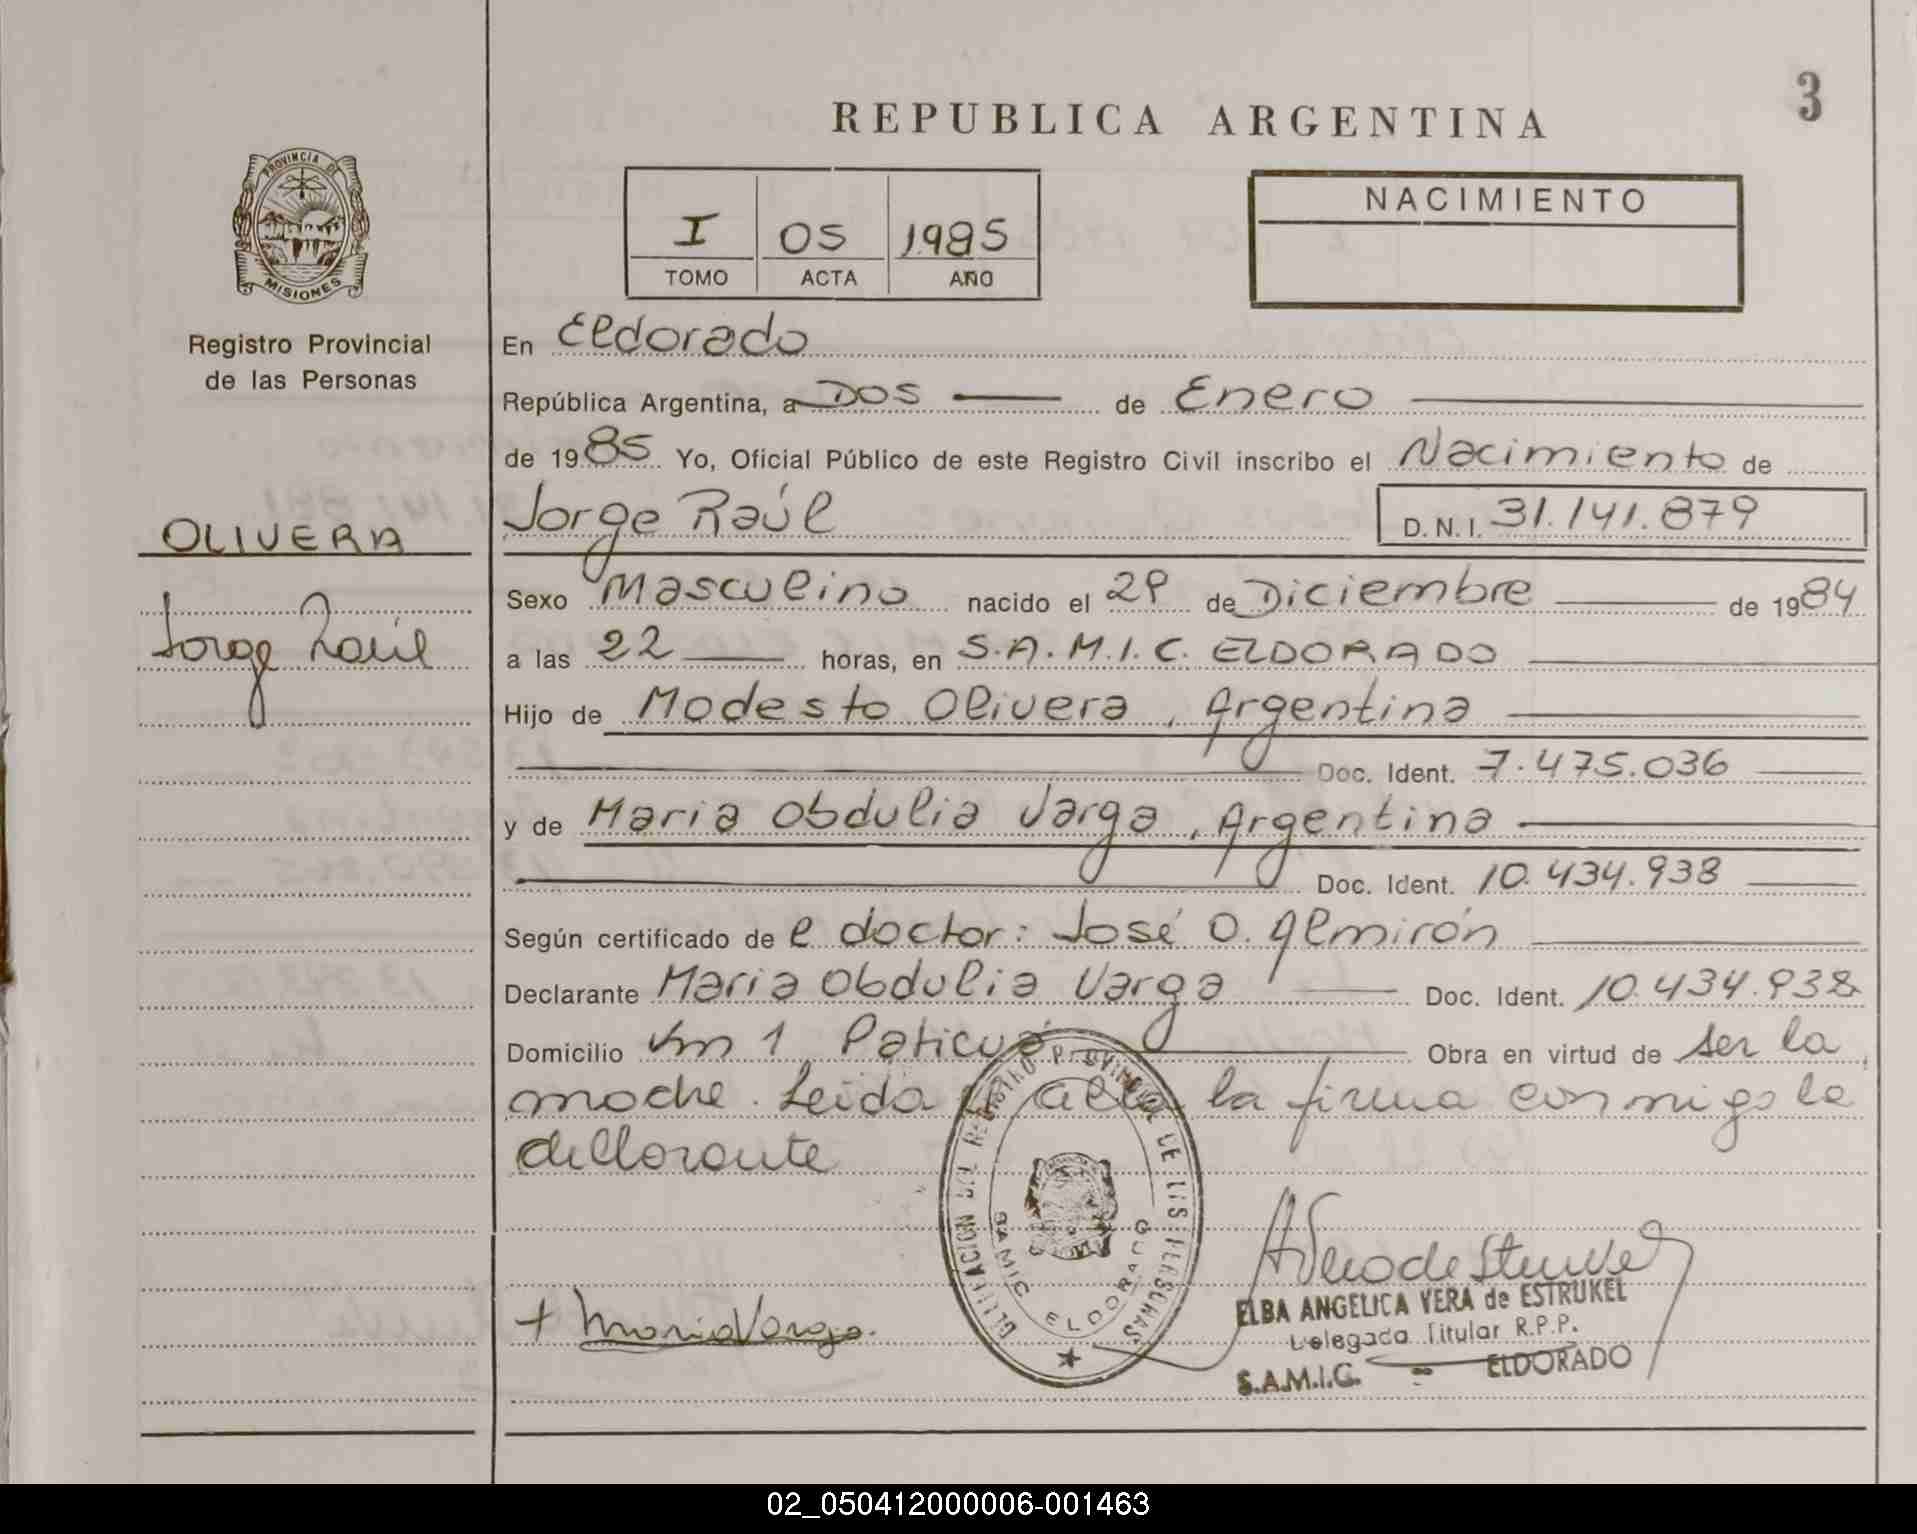 3
REPUBLICA ARGENTINA
PROVINCIA DE
MISIONES
Registro Provincial
de las Personas
I 05 1985
TOMO ACTA AÑO
NACIMIENTO
En Eldorado
República Argentina, a Dos de Enero
de 1985 Yo, Oficial Público de este Registro Civil inscribo el Nacimiento de
OLIVERA
Jorge Raúl
Jorge Raúl D.N.I. 31.141.879
Sexo Masculino nacido el 29 de Diciembre de 1984
a las 22 horas, en S.A.M.I.C. ELDORADO
Hijo de Modesto Olivera, Argentina
Doc. Ident. 7.475.036
y de Maria Obdulia Varga, Argentina
Doc. Ident. 10.434.938
Según certificado de el doctor: José O. Almirón
Declarante Maria Obdulia Varga Doc. Ident. 10.434.938
Domicilio Km 1 Paticuá Obra en virtud de ser la
madre. Leida el acta la firma conmigo la
declarante
DELEGACION DEL REGISTRO PROVINCIAL DE LAS PERSONAS
SAMIC ELDORADO
+ Maria Varga.
ELBA ANGELICA VERA de ESTRUKEL
Delegada Titular R.P.P.
S.A.M.I.C. ELDORADO
02_050412000006-001463